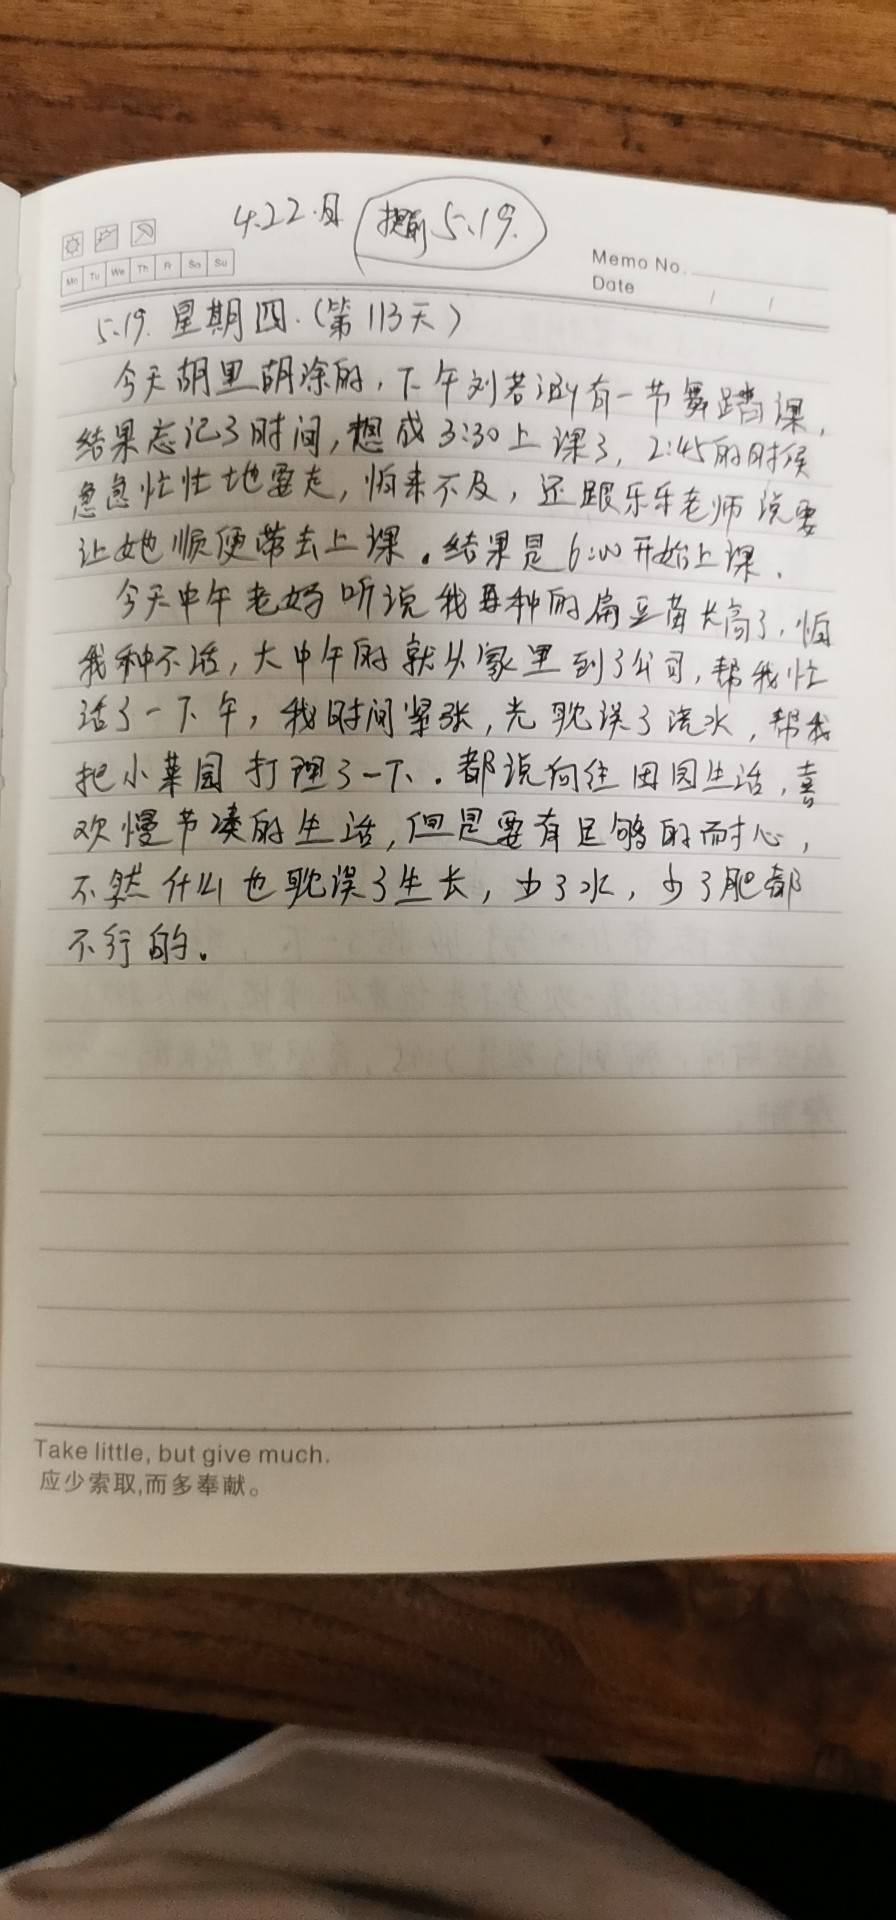 4.22.日 提前5.19.
Mo Tu We Th Fr Sa Su
Memo No.
Date / /
5.19. 星期四.(第113天)
今天胡里胡涂的,下午刘若 有一节舞蹈课,
结果忘记了时间,想成3:30上课了,2:45的时候
急急忙忙地要走,怕来不及,还跟乐乐老师说要
让她顺便带去上课。结果是6:00开始上课.
今天中午老妈听说我 种的扁豆苗长高了,怕
我种不活,大中午的就从家里到了公司,帮我忙
活了一下午,我时间紧张,光耽误了浇水,帮我
把小菜园打理了一下.都说向往田园生活,喜
欢慢节凑的生活,但是要有足够的耐心,
不然什么也耽误了生长,少了水,少了肥都
不行的。
Take little, but give much.
应少索取,而多奉献。